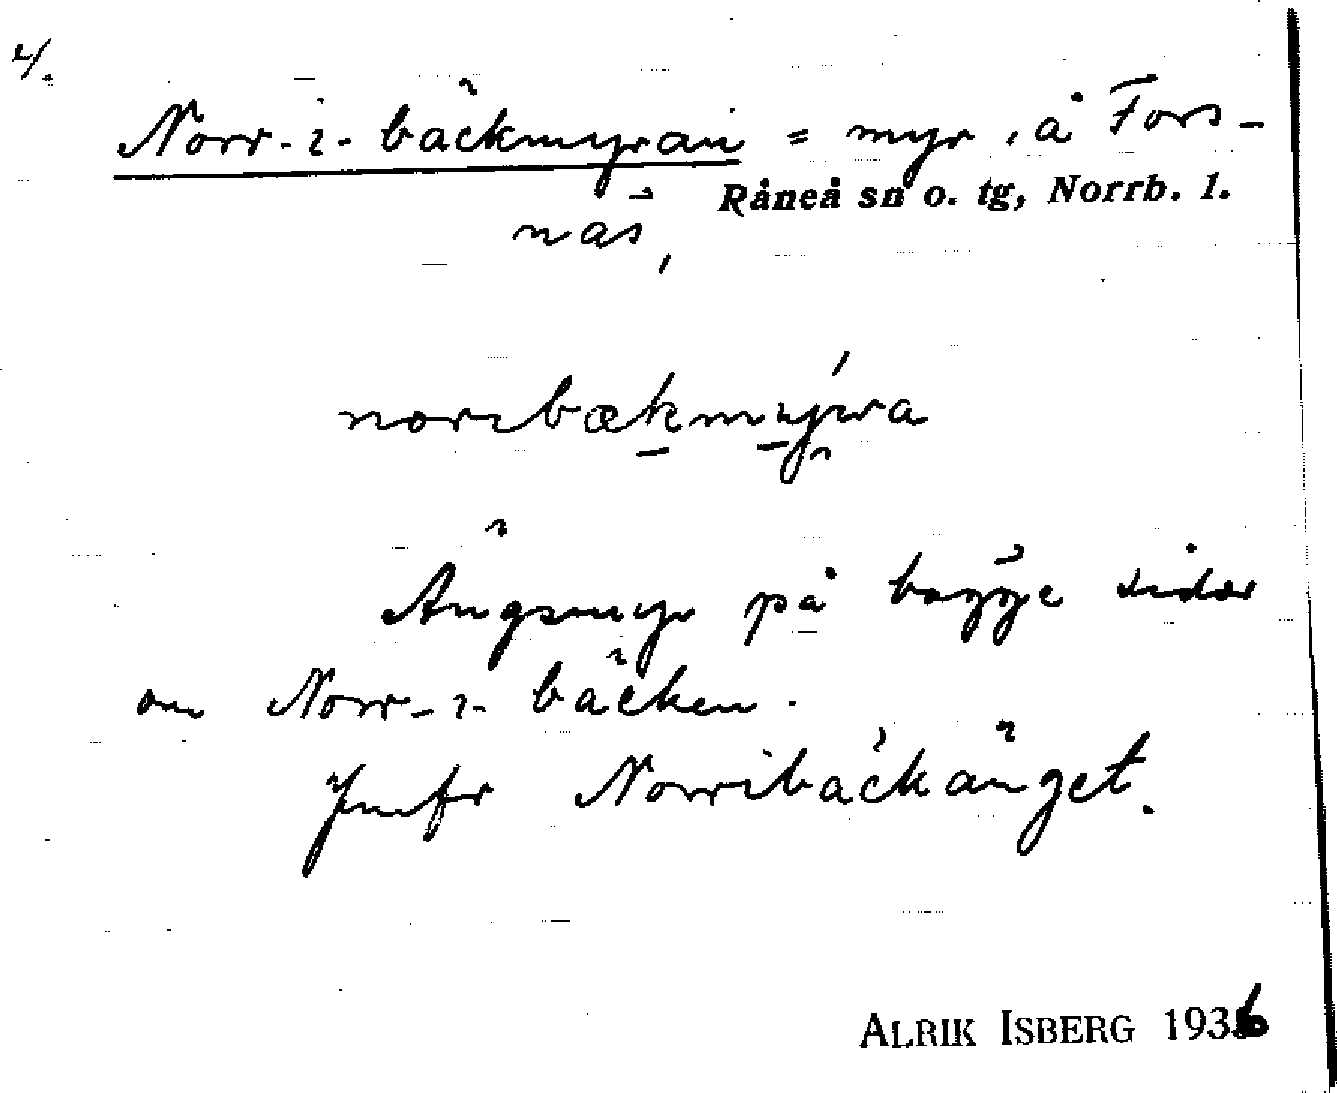 4/.
Norr-i-bäckmyran = myr, å Fors-
Råneå sn o. tg, Norrb. l.
näs,
norıbækmýra
Ängsmyr på bägge sidor
om Norr-i-bäcken.
Jmfr Norribäckänget.
ALRIK ISBERG 1936